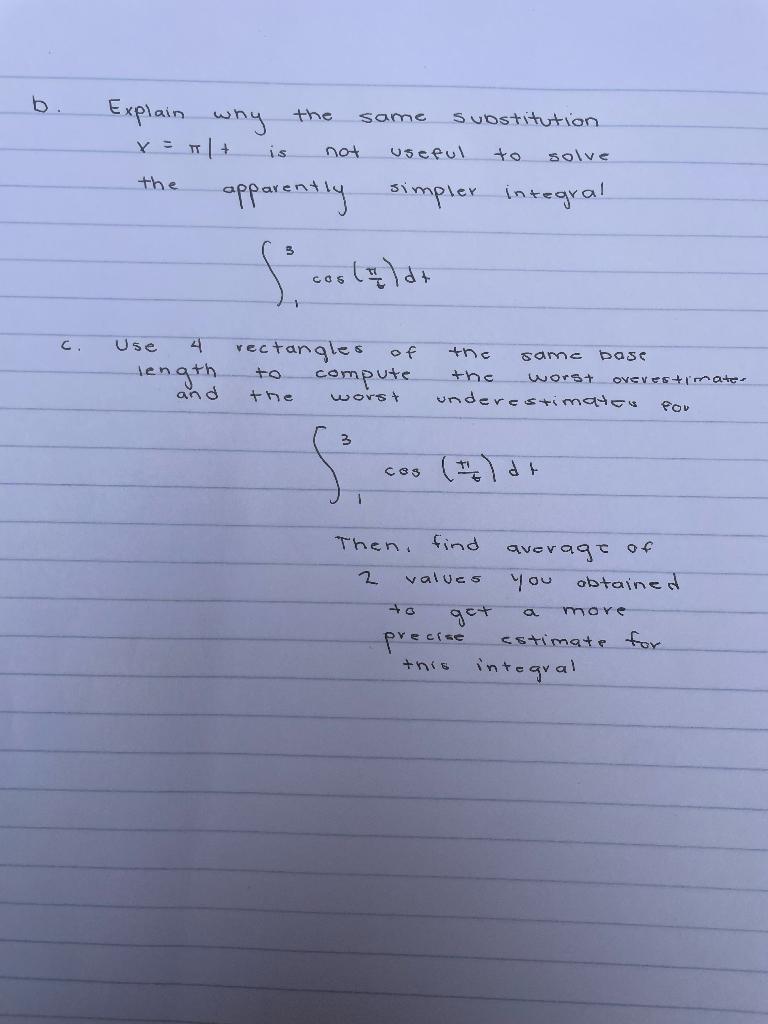 b. Explain why the same substitution
r = π/t is not useful to solve
the apparently simpler integral
∫₁³ cos(π/t) dt
c. Use 4 rectangles of the same base
length to compute the worst overestimates
and the worst underestimates for
∫₁³ cos (π/t) dt
Then, find average of
2 values you obtained
to get a more
precise estimate for
this integral